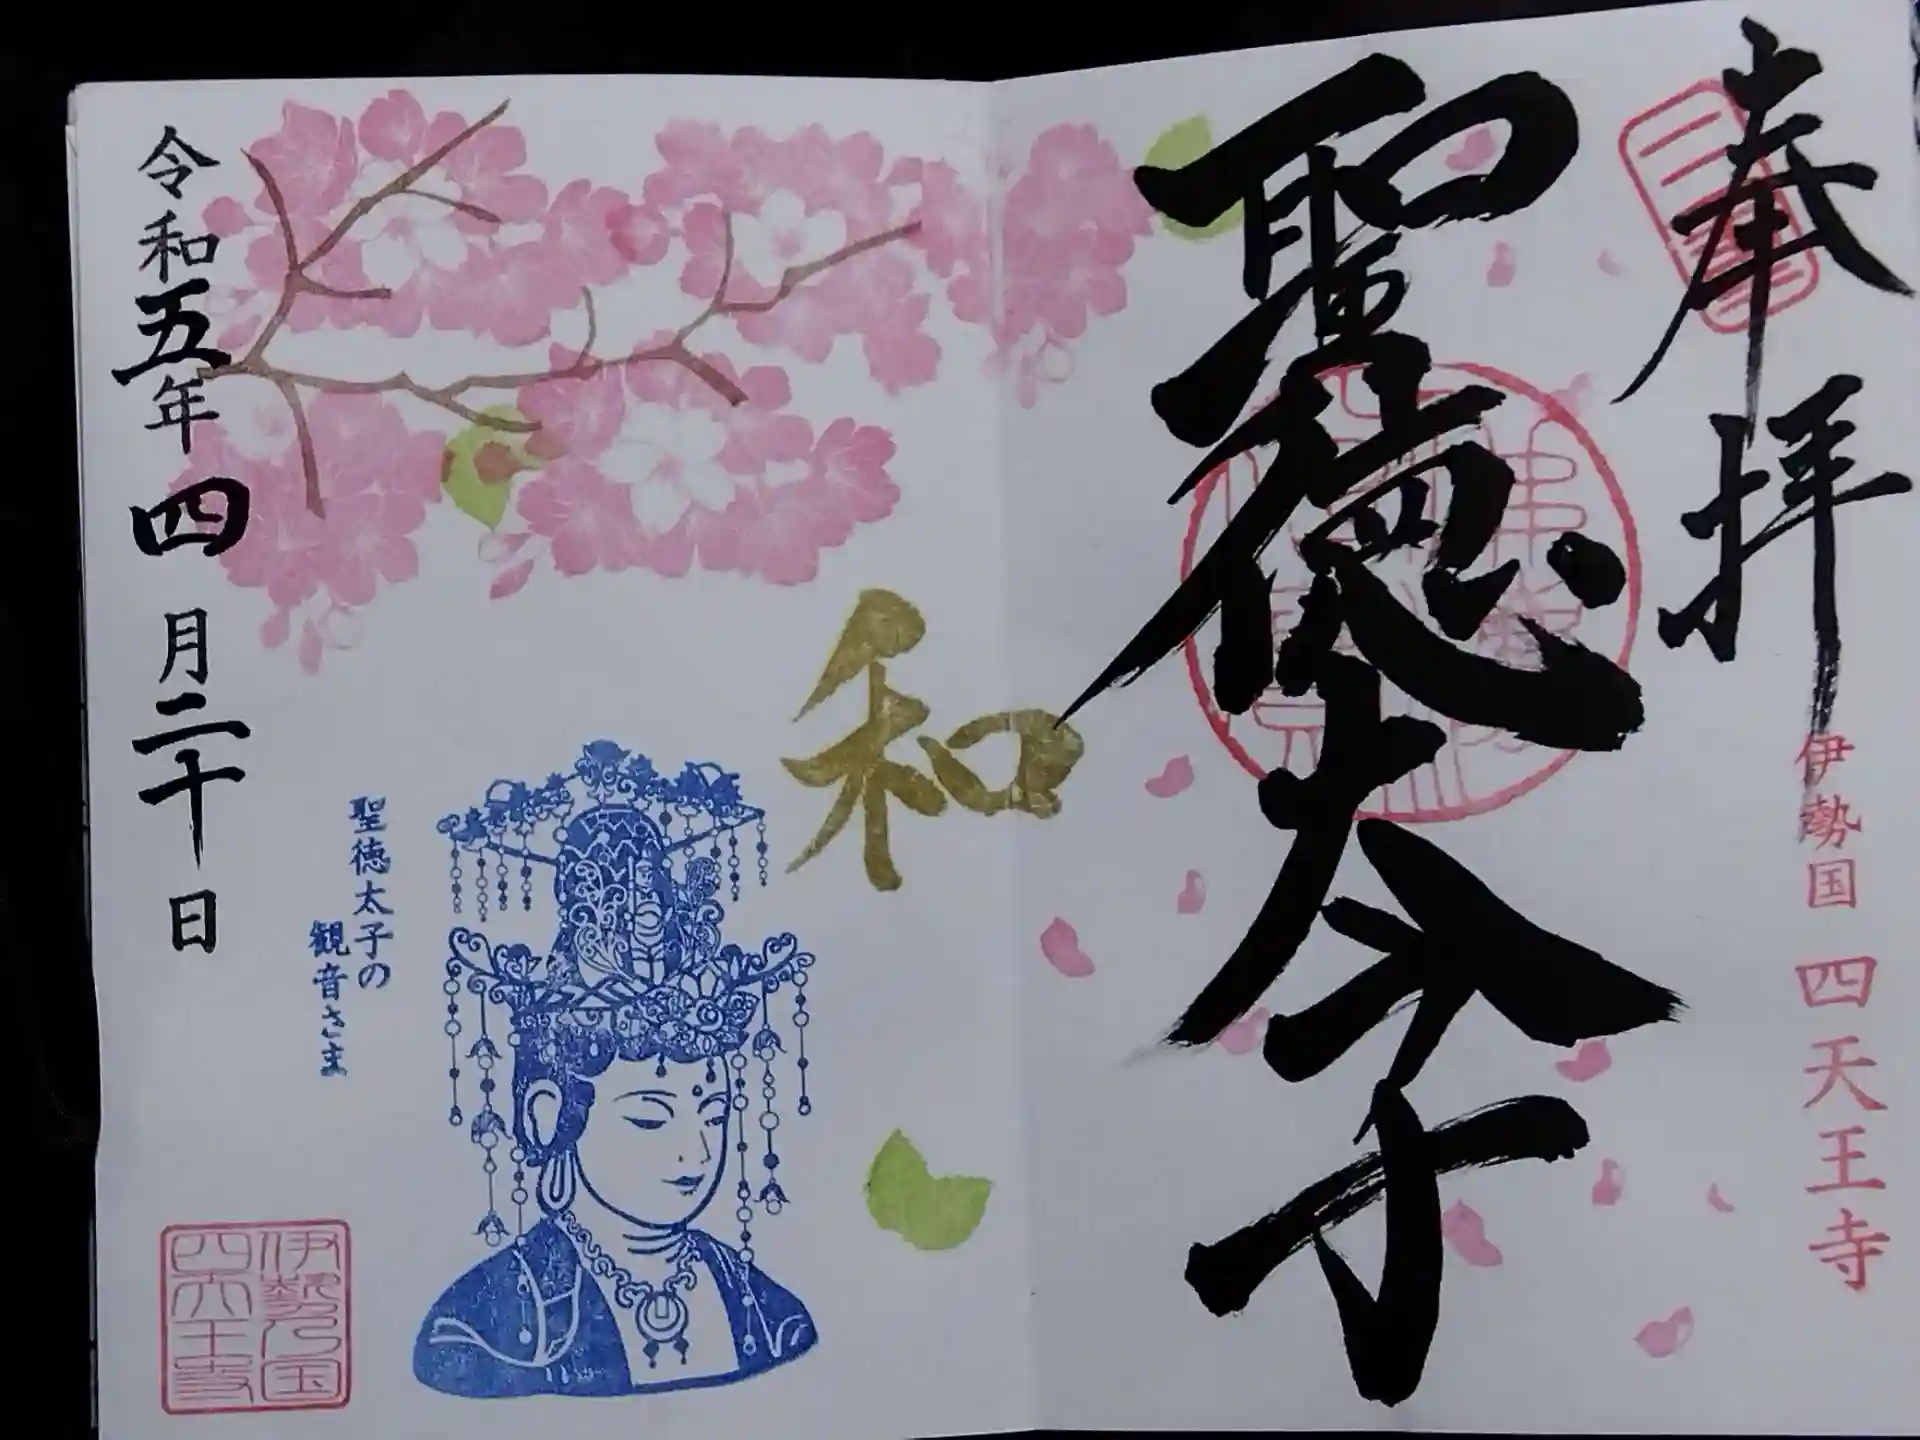 奉拝
伊勢国 四天王寺
聖徳太子
和
聖徳太子の
観音さま
令和五年四月二十日
伊勢乃国
四天王寺